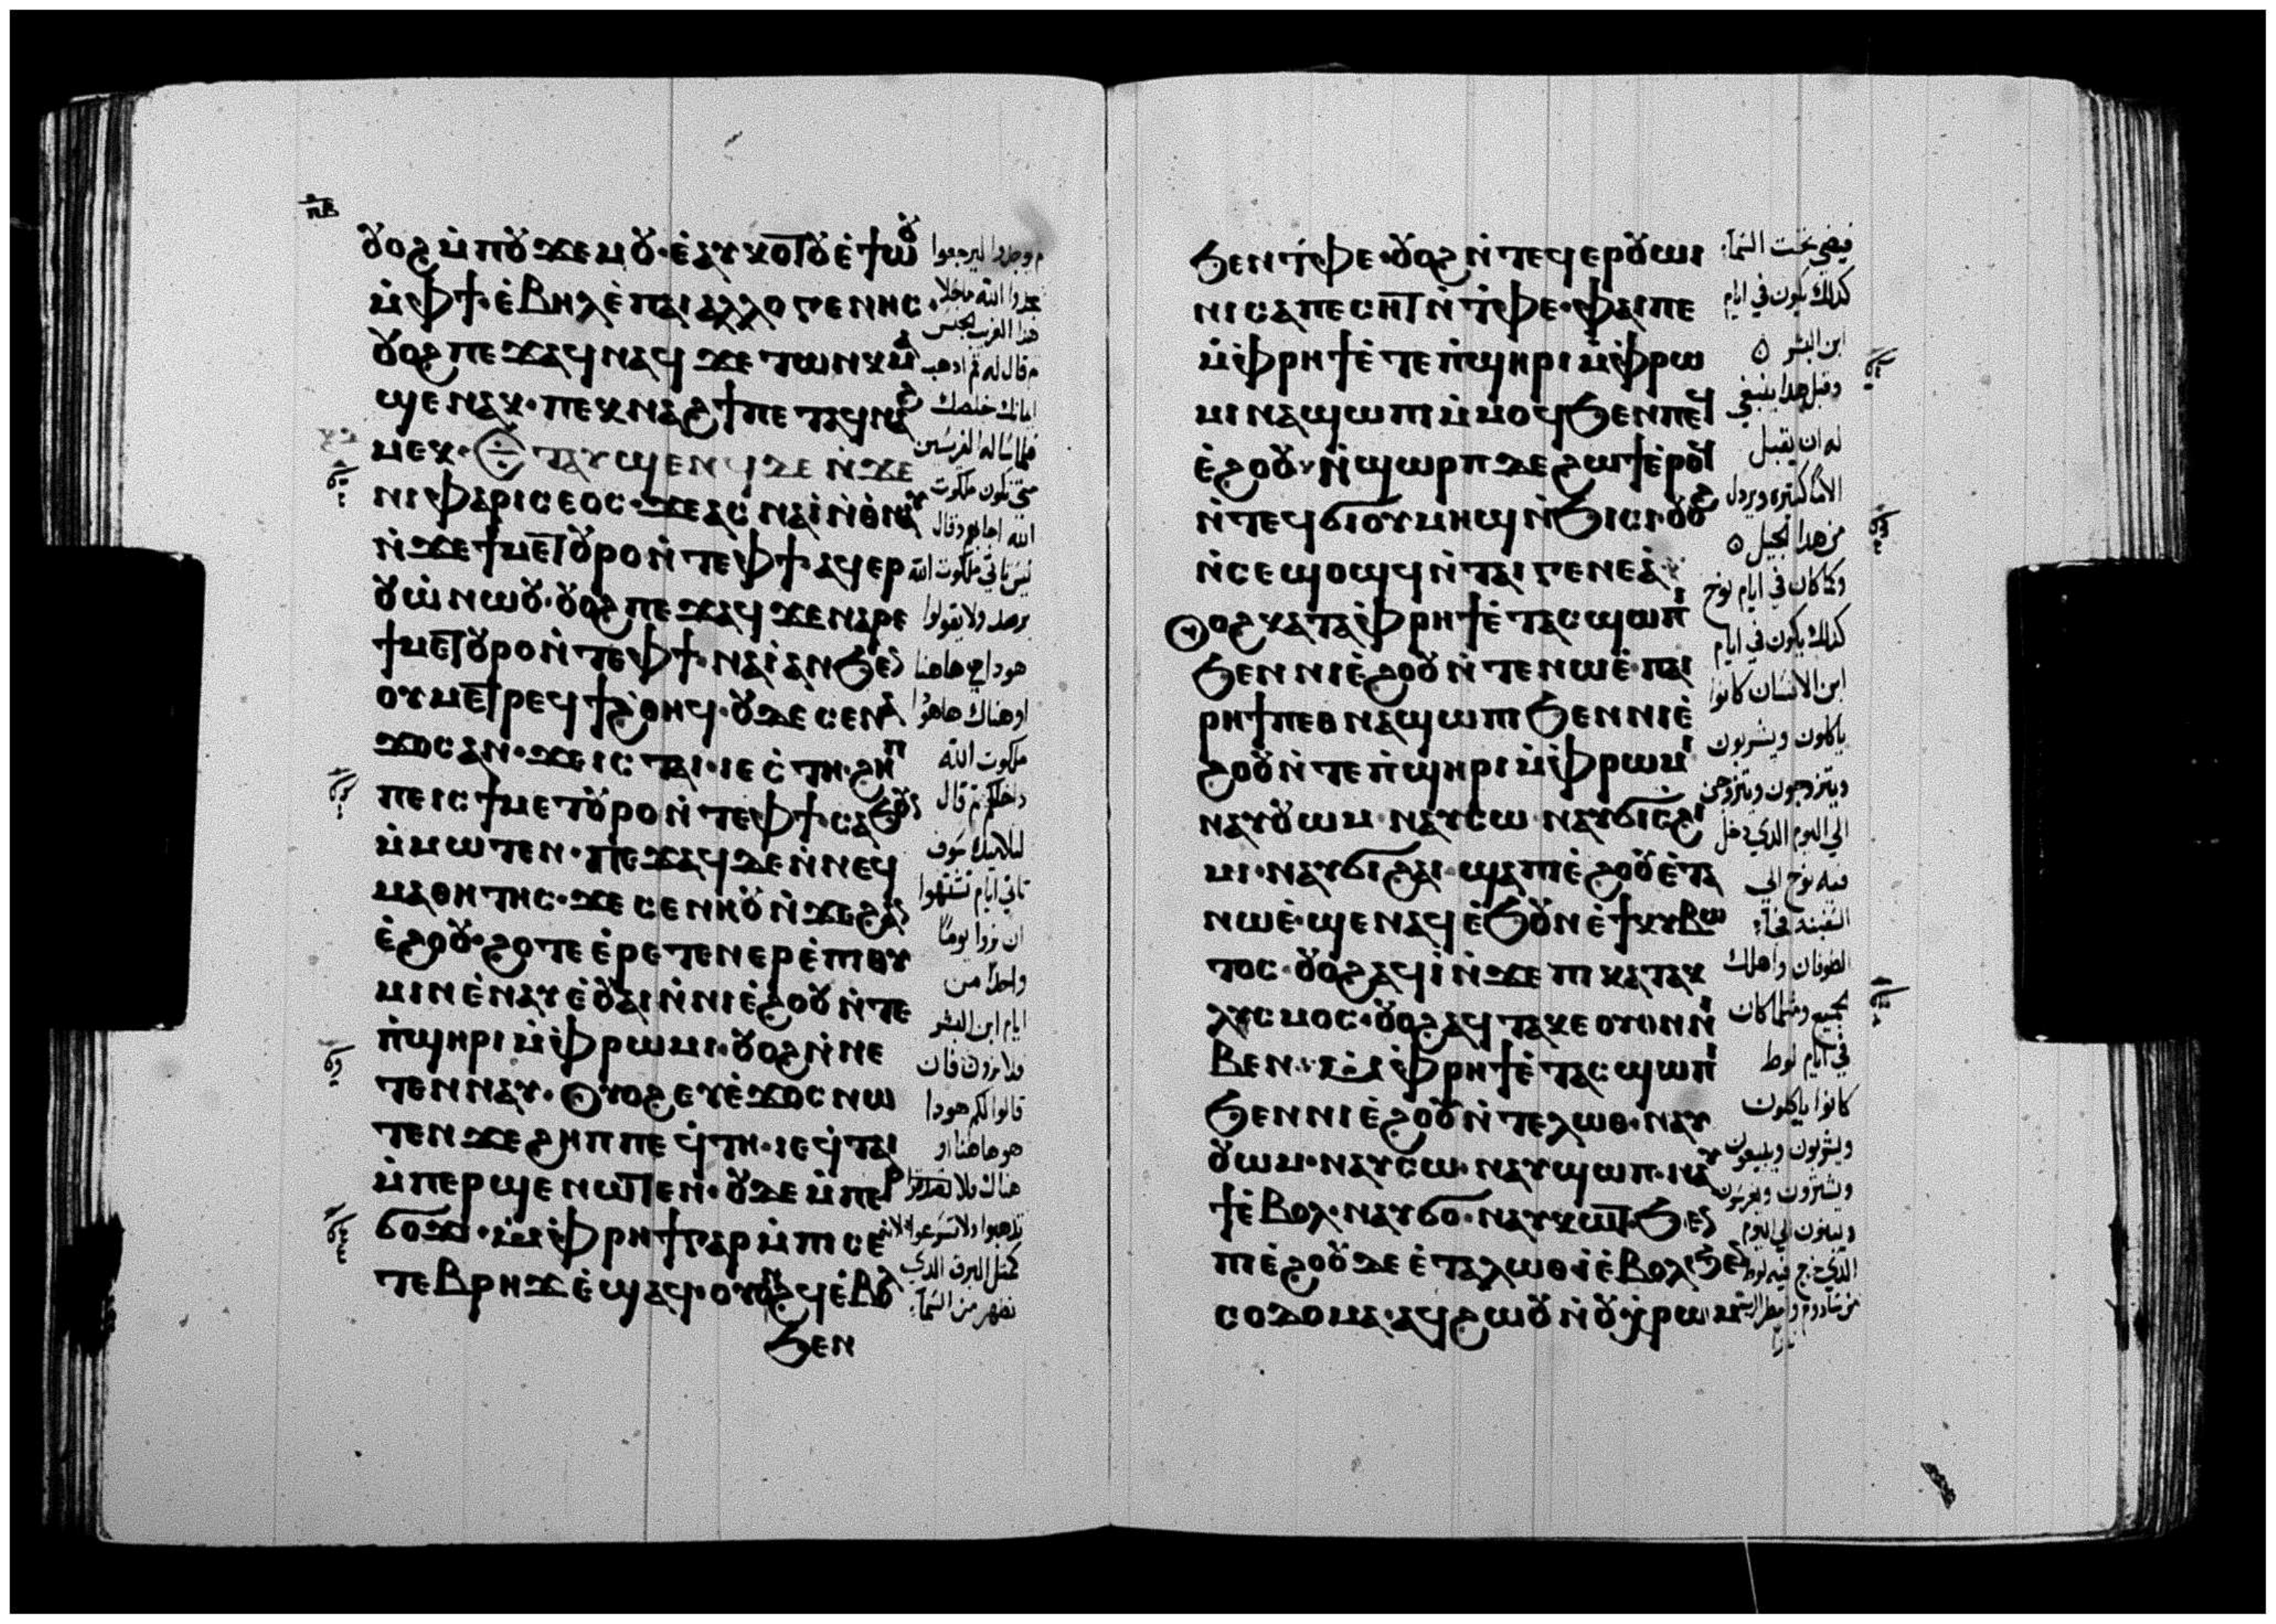 ⲡⲃ
ⲟⲩⲟϩ ⲙ̀ⲡⲟⲩϫⲉⲙⲟⲩ·ⲉ̀ⲁⲩⲕⲟⲧⲟⲩ ⲉ̀ϯⲱⲟⲩ
ⲙ̀ⲫϯ·ⲉ̀ⲃⲏⲗ ⲉ̀ⲡⲁⲓⲁⲗⲗⲟⲅⲉⲛⲏⲥ·
ⲟⲩⲟϩ ⲡⲉϫⲁϥ ⲛⲁϥ ϫⲉ ⲧⲱⲛⲕ ⲙⲁ
ϣⲉ ⲛⲁⲕ·ⲡⲉⲕⲛⲁϩϯ ⲡⲉⲧⲁϥⲛⲁϩ
ⲙⲉⲕ· ⲉⲧⲁⲩϣⲉⲛϥ ⲇⲉ ⲛ̀ϫⲉ
ⲛⲓⲫⲁⲣⲓⲥⲉⲟⲥ·ϫⲉ ⲁⲥⲛⲁⲓ̀ ⲛ̀ⲑⲛⲁⲩ
ⲛ̀ϫⲉ ϯⲙⲉⲧⲟⲩⲣⲟ ⲛ̀ⲧⲉ ⲫϯ·ⲁϥⲉⲣ
ⲟⲩⲱ̀ ⲛⲱⲟⲩ·ⲟⲩⲟϩ ⲡⲉϫⲁϥ ϫⲉ ⲛⲁⲣⲉ
ϯⲙⲉⲧⲟⲩⲣⲟ ⲛ̀ⲧⲉ ⲫϯ·ⲛⲁⲓ̀ ⲁⲛ ϧⲉⲛ
ⲟⲩⲙⲉⲧⲣⲉϥϯϩ̀ⲑⲏϥ·ⲟⲩⲇⲉ ⲥⲉⲛⲁ
ϫⲟⲥ ⲁⲛ·ϫⲉ ⲓⲥ ⲧⲁⲓ·ⲓⲉ ⲥ̀ⲧⲏ·ϩⲏⲡ
ⲡⲉ ⲓⲥ ϯⲙⲉⲧⲟⲩⲣⲟ ⲛ̀ⲧⲉ ⲫϯ·ⲥⲁϧⲟⲩⲛ
ⲙ̀ⲙⲱⲧⲉⲛ·ⲡⲉϫⲁϥ ⲇⲉ ⲛ̀ⲛⲉϥ
ⲙⲁⲑⲏⲧⲏⲥ·ϫⲉ ⲥⲉⲛⲏⲟⲩ ⲛ̀ϫⲉ ϩⲁⲛ
ⲉ̀ϩⲟⲟⲩ·ϩⲟⲧⲉ ⲉ̀ⲣⲉⲧⲉⲛⲉⲣⲉ̀ⲡⲓⲑⲩ
ⲙⲓⲛ ⲉ̀ⲛⲁⲩ ⲉ̀ⲟⲩⲁⲓ ⲛ̀ⲛⲓⲉ̀ϩⲟⲟⲩ ⲛ̀ⲧⲉ
ⲡ̀ϣⲏⲣⲓ ⲙ̀ⲫⲣⲱⲙⲓ·ⲟⲩⲟϩ ⲛ̀ⲛⲉ
ⲧⲉⲛⲛⲁⲩ·ⲟⲩⲟϩ ⲉⲩⲉ̀ϫⲟⲥ ⲛⲱ
ⲧⲉⲛ ϫⲉ ϩⲏⲡⲡⲉ ϥ̀ⲧⲏ·ⲓⲉ ϥ̀ⲧⲁⲓ
ⲙ̀ⲡⲉⲣϣⲉⲛⲱⲧⲉⲛ·ⲟⲩⲇⲉ ⲙ̀ⲡⲉⲣ
ϭⲟϫⲓ·ⲙ̀ⲫⲣⲏϯ ⲅⲁⲣ ⲙ̀ⲡⲓⲥⲉ
ⲧⲉⲃⲣⲏϫ ⲉ̀ϣⲁϥ·ⲟⲩⲟⲛϩϥ ⲉ̀ⲃⲟⲗ
ϧⲉⲛ
وجدوا ليرجعوا
هذا الغريب الجنس
وقال له قم اذهب
ايمانك خلصك
فلما سأله الفريسين
متى تكون ملكوت
الله اجابهم وقال
ليس تاتي ملكوت الله
برصد ولا يقولوا
هوذا هي هاهنا
او هناك هاهوذا
ملكوت الله
داخلكم ثم قال
لتلاميذه سوف
تاتي ايام تشتهوا
ان تروا يوما
واحدا من
ايام ابن البشر
فلا ترون فان
قالوا لكم هوذا
هو هاهنا او
هناك فلا
تذهبوا ولا تسرعوا لانه
كمثل البرق الذي
يظهر من السما
ϧⲉⲛ ⲧ̀ⲫⲉ·ⲟⲩⲟϩ ⲛ̀ⲧⲉϥⲉⲣⲟⲩⲱⲓⲛⲓ
ⲛⲓⲥⲁⲡⲉⲥⲏⲧ ⲛ̀ⲧ̀ⲫⲉ·ⲫⲁⲓ ⲡⲉ
ⲙ̀ⲫⲣⲏϯ ⲉ̀ⲧⲉ ⲡ̀ϣⲏⲣⲓ ⲙ̀ⲫⲣⲱ
ⲙⲓ ⲛⲁϣⲱⲡⲓ ⲙ̀ⲙⲟϥ ϧⲉⲛ ⲡⲉϥ
ⲉ̀ϩⲟⲟⲩ·ⲛ̀ϣⲱⲣⲡ ⲇⲉ ϩⲱϯ ⲉ̀ⲣⲟϥ
ⲛ̀ⲧⲉϥϭⲓ ⲟⲩⲙⲏϣ ⲛ̀ϧⲓⲥⲓ·ⲟⲩⲟϩ
ⲛ̀ⲥⲉϣⲟϣϥ ⲛ̀ⲧⲁⲓⲅⲉⲛⲉⲁ·
ⲟⲩⲟϩ ⲕⲁⲧⲁ ⲫⲣⲏϯ ⲉ̀ⲧⲁⲥϣⲱⲡⲓ
ϧⲉⲛ ⲛⲓⲉ̀ϩⲟⲟⲩ ⲛ̀ⲧⲉ ⲛⲱⲉ̀·ⲡⲁⲓ
ⲣⲏϯ ⲡⲉⲑⲛⲁϣⲱⲡⲓ ϧⲉⲛ ⲛⲓⲉ̀
ϩⲟⲟⲩ ⲛ̀ⲧⲉ ⲡ̀ϣⲏⲣⲓ ⲙ̀ⲫⲣⲱⲙⲓ
ⲛⲁⲩⲟⲩⲱⲙ·ⲛⲁⲩⲥⲱ·ⲛⲁⲩϭⲓⲥϩⲓ
ⲙⲓ·ⲛⲁⲩϭⲓϩⲁⲓ·ϣⲁ ⲡⲓⲉ̀ϩⲟⲟⲩ ⲉ̀ⲧⲁ
ⲛⲱⲉ̀·ϣⲉⲛⲁϥ ⲉ̀ϧⲟⲩⲛ ⲉ̀ϯⲕⲩⲃⲱ
ⲧⲟⲥ·ⲟⲩⲟϩ ⲁϥⲓ̀ ⲛ̀ϫⲉ ⲡⲓⲕⲁⲧⲁⲕ
ⲗⲩⲥⲙⲟⲥ·ⲟⲩⲟϩ ⲁϥⲧⲁⲕⲉ ⲟⲩⲟⲛ ⲛⲓ
ⲃⲉⲛ· ⲙ̀ⲫⲣⲏϯ ⲉ̀ⲧⲁⲥϣⲱⲡⲓ
ϧⲉⲛ ⲛⲓⲉ̀ϩⲟⲟⲩ ⲛ̀ⲧⲉ ⲗⲱⲑ·ⲛⲁⲩ
ⲟⲩⲱⲙ·ⲛⲁⲩⲥⲱ·ⲛⲁⲩϣⲱⲡ·ⲛⲁⲩ
ϯ ⲉ̀ⲃⲟⲗ·ⲛⲁⲩϭⲟ·ⲛⲁⲩⲕⲱⲧ·ϧⲉⲛ
ⲡⲓⲉ̀ϩⲟⲟⲩ ⲇⲉ ⲉ̀ⲧⲁ ⲗⲱⲑ·ⲓ̀ ⲉ̀ⲃⲟⲗ ϧⲉⲛ
ⲥⲟⲇⲟⲙⲁ·ⲁϥϩⲱⲟⲩ ⲛ̀ⲟⲩⲭ̀ⲣⲱⲙ
فيضي تحت السما
كذلك يكون في ايام
ابن البشر
وقبل هذا ينبغي
له ان يقبل
الاما كثيره ويرذل
من هذا الجيل
وكما كان في ايام نوح
كذلك يكون في ايام
ابن الانسان كانوا
ياكلون ويشربون
ويتزوجون ويتزوجن
الي اليوم الذي دخل
فيه نوح الي
السفينه فجا
الطوفان واهلك
الجميع ومثلما كان
في ايام لوط
كانوا ياكلون
ويشربون ويبيعون
ويشترون ويغرسون
ويبنون الي اليوم
الذي خرج فيه لوط
من سادوم وامطر الرب
نارا